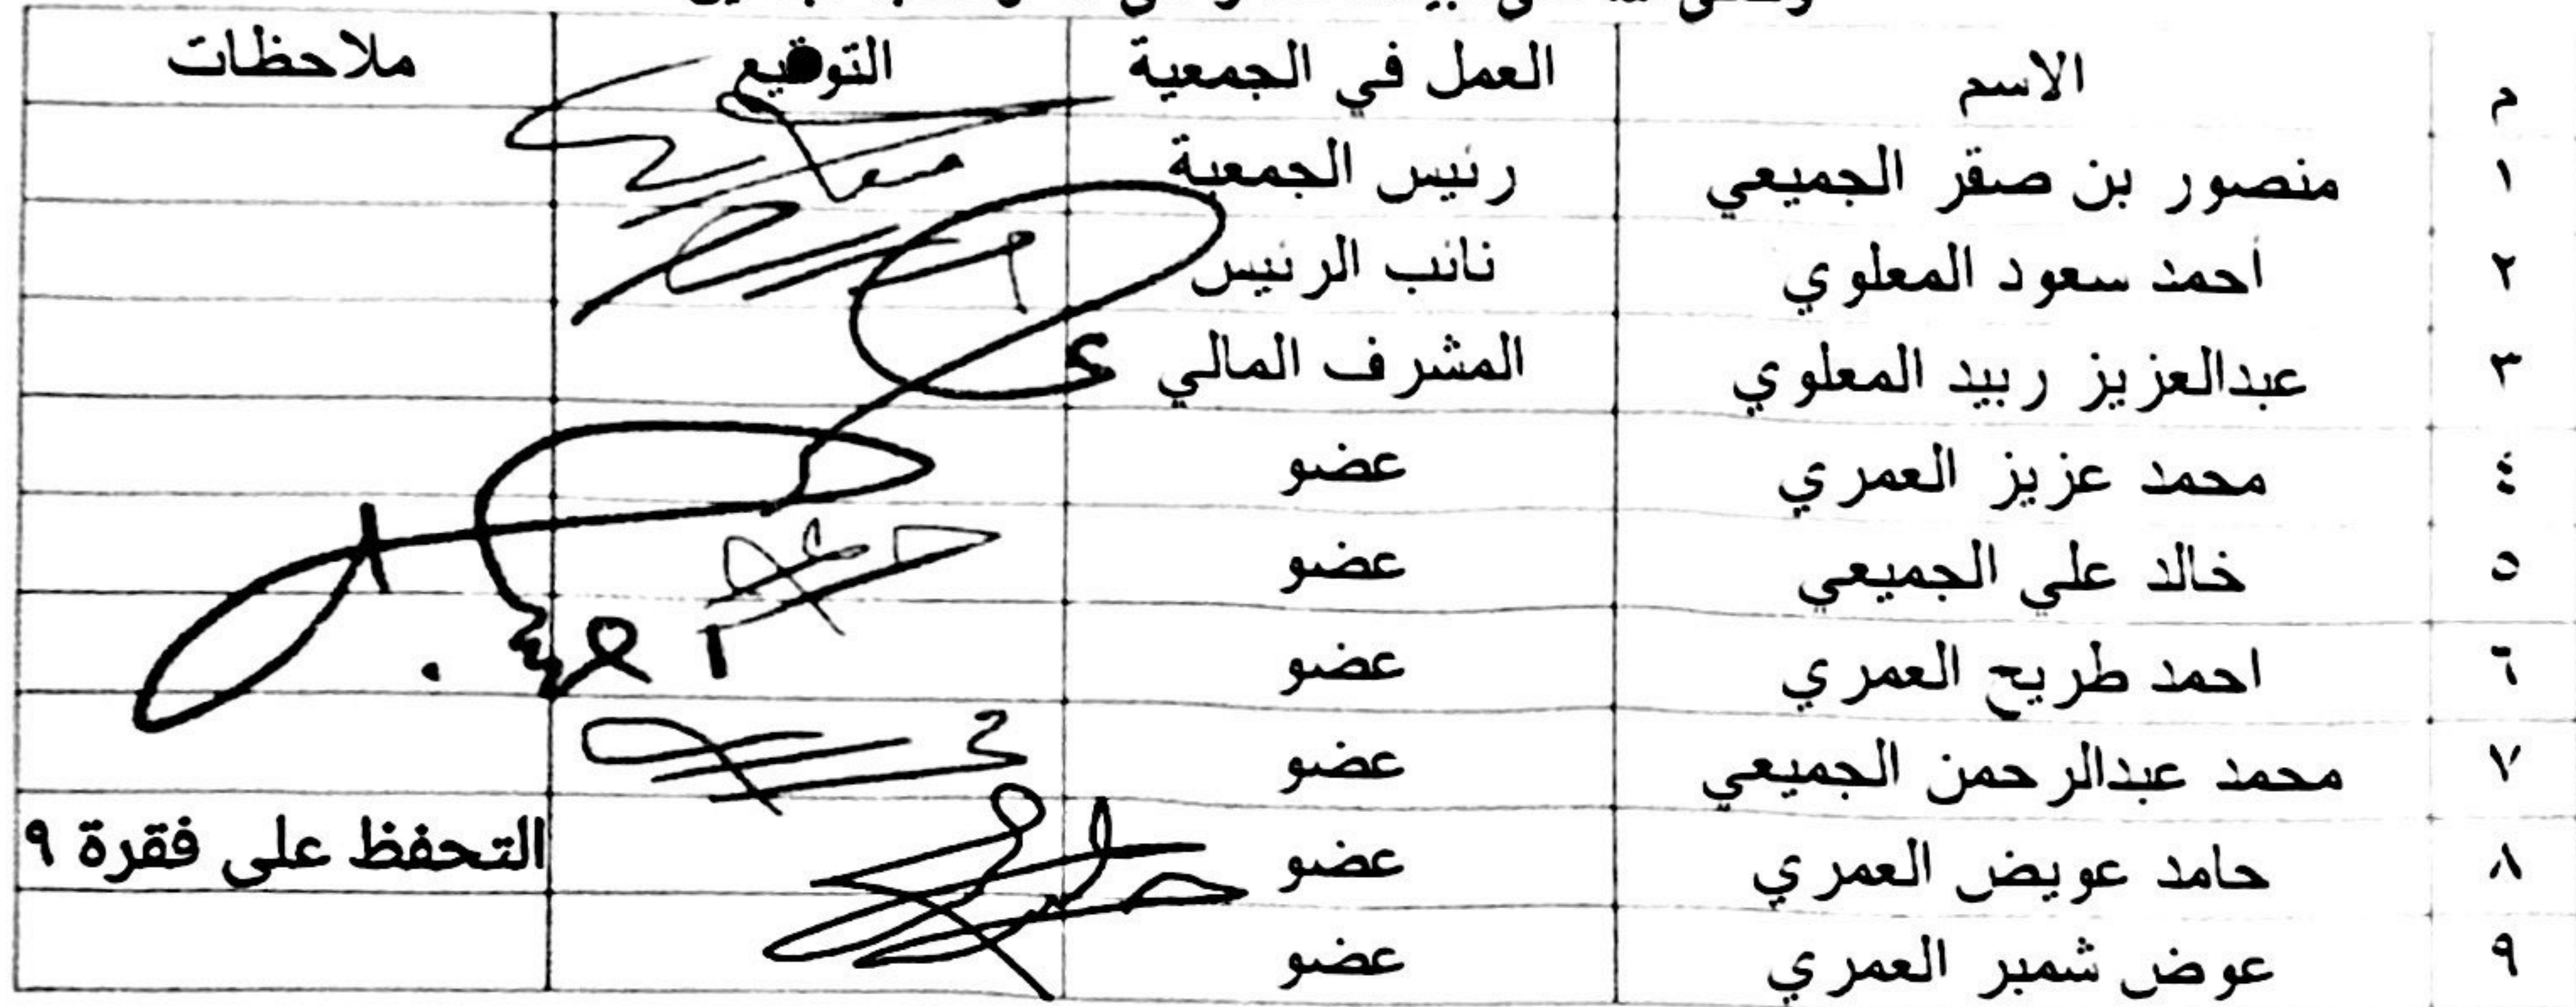 م الاسم العمل في الجمعية التوقيع ملاحظات
١ منصور بن صقر الجميعي رئيس الجمعية
٢ احمد سعود المعلوي نائب الرئيس
٣ عبدالعزيز ربيد المعلوي المشرف المالي
٤ محمد عزيز العمري عضو
٥ خالد علي الجميعي عضو
٦ احمد طريح العمري عضو
٧ محمد عبدالرحمن الجميعي عضو
٨ حامد عويض العمري عضو التحفظ على فقرة ٩
٩ عوض شمبر العمري عضو